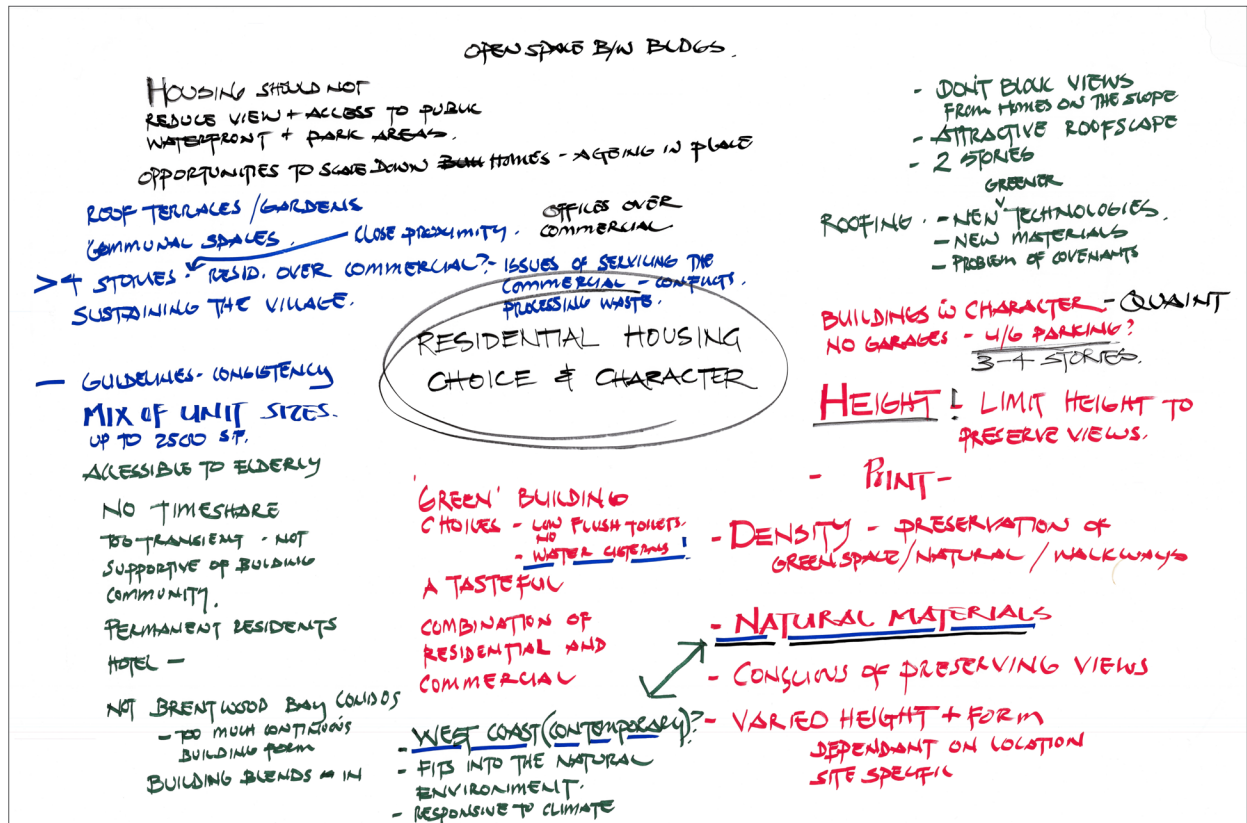 OPEN SPACE B/W BLDGS.
HOUSING SHOULD NOT
REDUCE VIEW + ACCESS TO PUBLIC
WATERFRONT + PARK AREAS.
OPPORTUNITIES TO SCALE DOWN HOMES - AGEING IN PLACE
ROOF TERRACES / GARDENS
COMMUNAL SPACES. CLOSE PROXIMITY.
OFFICES OVER
COMMERCIAL
>4 STORIES - RESID. OVER COMMERCIAL? - ISSUES OF SERVICING THE
COMMERCIAL - CONFLICTS.
PROCESSING WASTE.
SUSTAINING THE VILLAGE.
RESIDENTIAL HOUSING
CHOICE & CHARACTER
- GUIDELINES - CONSISTENCY
MIX OF UNIT SIZES.
UP TO 2500 S.F.
ACCESSIBLE TO ELDERLY
NO TIMESHARE
TOO TRANSIENT - NOT
SUPPORTIVE OF BUILDING
COMMUNITY.
PERMANENT RESIDENTS
HOTEL -
NOT BRENTWOOD BAY CONDOS
- TOO MUCH CONTINUOUS
BUILDING FORM
BUILDING BLENDS IN
'GREEN' BUILDING
CHOICES - LOW FLUSH TOILETS.
NO
- WATER CISTERNS!
A TASTEFUL
COMBINATION OF
RESIDENTIAL AND
COMMERCIAL
- WEST COAST (CONTEMPORARY)?
- FITS INTO THE NATURAL
ENVIRONMENT.
- RESPONSIVE TO CLIMATE
- DON'T BLOCK VIEWS
FROM HOMES ON THE SLOPE
- ATTRACTIVE ROOFSCAPE
- 2 STORIES
GREENER
ROOFING - NEW TECHNOLOGIES.
- NEW MATERIALS
- PROBLEM OF COVENANTS
BUILDINGS W CHARACTER - QUAINT
NO GARAGES - U/G PARKING?
3-4 STORIES.
HEIGHT! - LIMIT HEIGHT TO
PRESERVE VIEWS.
- POINT -
- DENSITY - PRESERVATION OF
GREENSPACE / NATURAL / WALKWAYS
- NATURAL MATERIALS
- CONSCIOUS OF PRESERVING VIEWS
- VARIED HEIGHT + FORM
DEPENDANT ON LOCATION
SITE SPECIFIC